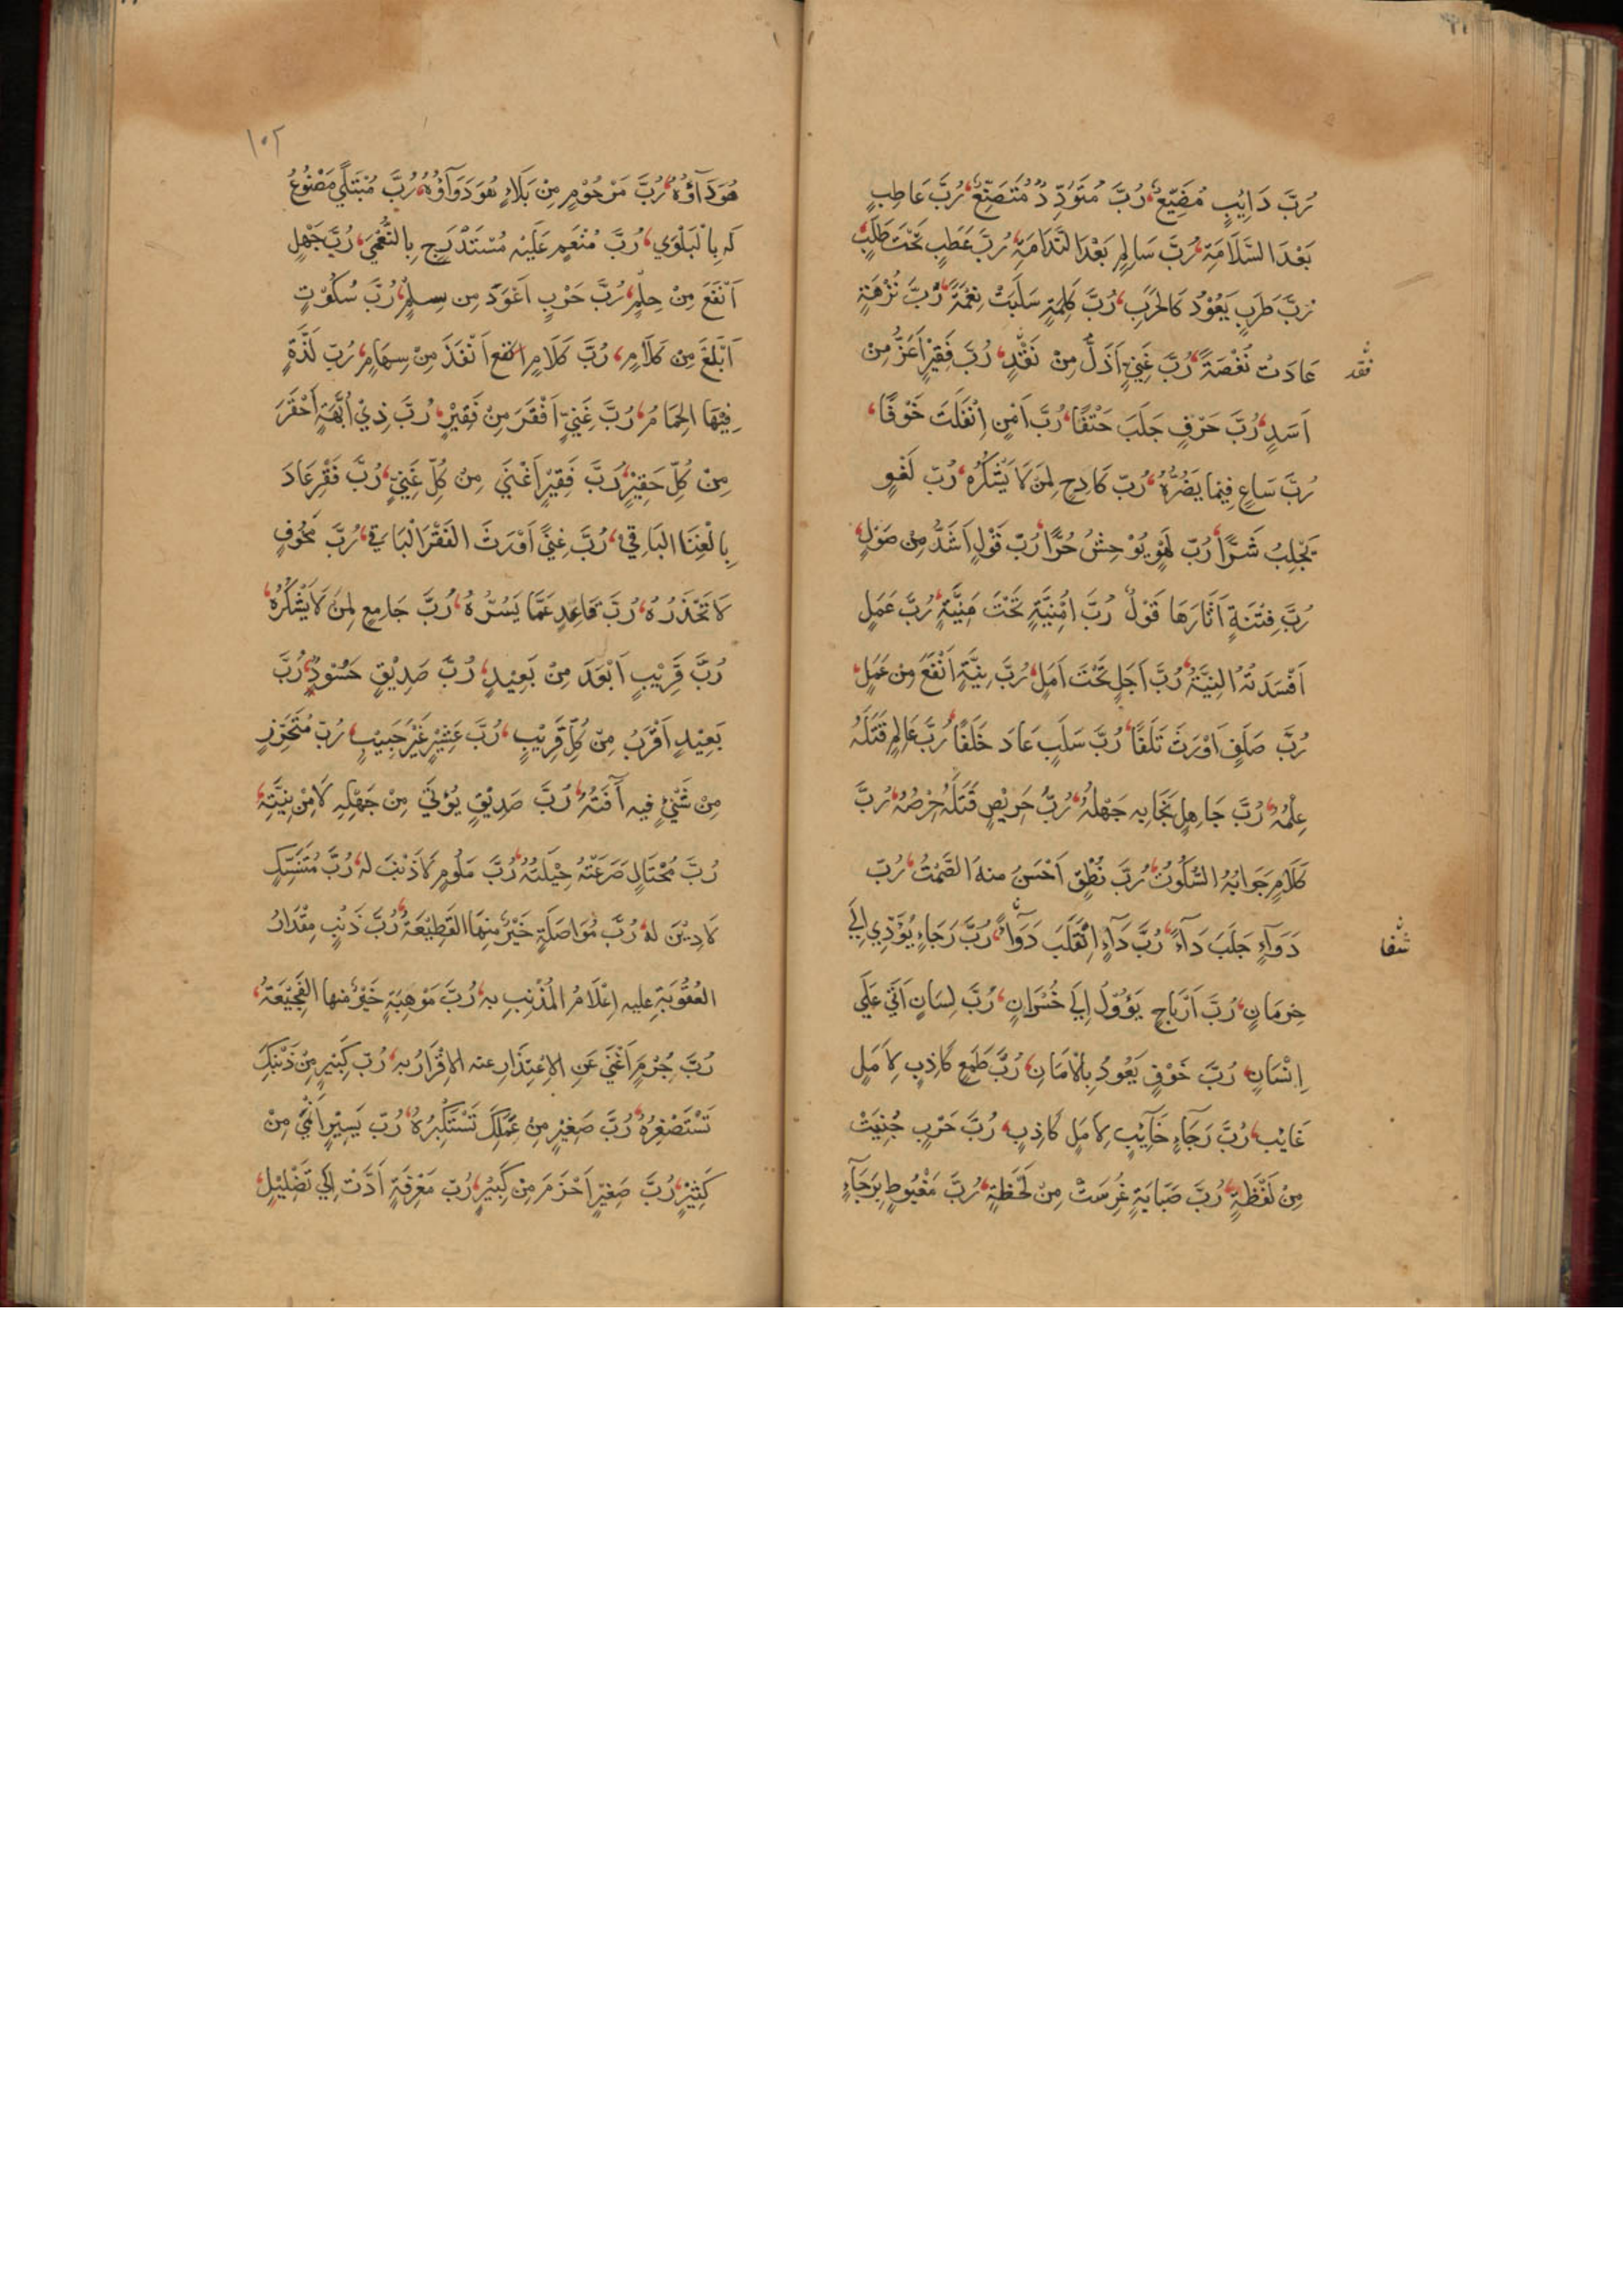 رُبَّ دَائِبٍ مُضَيِّعٌ، رُبَّ مُتَوَدِّدٍ مُتَصَنِّعٌ، رُبَّ عَاطِبٍ
بَعْدَ السَّلَامَةِ، رُبَّ سَالِمٍ بَعْدَ النَّدَامَةِ، رُبَّ عَطَبٍ تَحْتَ طَلَبٍ،
رُبَّ طَرَبٍ يَعُوْدُ كَالْحَرَبِ، رُبَّ كَلِمَةٍ سَلَبَتْ نِعْمَةً، رُبَّ نُزْهَةٍ
عَادَتْ نُغْصَةً، رُبَّ غَنِيٍّ اَذَلُّ مِنْ نَقْدٍ، رُبَّ فَقِيْرٍ اَعَزُّ مِنْ
نقد
اَسَدٍ، رُبَّ حَرْفٍ جَلَبَ حَتْفًا، رُبَّ اَمْنٍ اِنْقَلَبَ خَوْفًا،
رُبَّ سَاعٍ فِيْمَا يَضُرُّهُ، رُبّ كَادِحٍ لِمَنْ لَا يَشْكُرُهُ، رُبّ لَغْوٍ
يَجْلِبُ شَرًّا، رُبّ لَهْوٍ يُوْحِشُ حُرًّا، رُبّ قَوْلٍ اَشَدُّ مِنْ صَوْلٍ،
رُبَّ فِتْنَةٍ اَثَارَهَا قَوْلٌ رُبَّ اُمْنِيَّةٍ تَحْتَ مَنِيَّةٍ، رُبَّ عَمَلٍ
اَفْسَدَتْهُ النِيَّةُ، رُبَّ اَجَلٍ تَحْتَ اَمَلٍ، رُبَّ نِيَّةٍ اَنْفَعُ مِنْ عَمَلٍ،
رُبَّ صَلَفٍ اَوْرَثَ تَلَفًا، رُبَّ سَلَبٍ عَادَ خَلَفًا، رُبَّ عَالِمٍ قَتَلَهُ
عِلْمُهُ، رُبَّ جَاهِلٍ نَجَا بِهِ جَهْلُهُ، رُبَّ حَرِيْصٍ قَتَلَهُ حِرْصُهُ، رُبَّ
كَلَامٍ جَوَابُهُ السُّكُوْتُ، رُبَّ نُطْقٍ اَحْسَنُ منهُ الصَّمْتُ، رُبّ
دَوَآءٍ جَلَبَ دَآءً، رُبَّ دَآءٍ اِنْقَلَبَ دَوَآءً، رُبَّ رَجَاءٍ يُؤَدِّي اِلَى
شفا
حِرمَانٍ، رُبَّ اَرْبَاحٍ يَؤُوْلُ اِلَى خُسْرَانٍ، رُبَّ لِسَانٍ اَتَى عَلَى
اِنْسَانٍ، رُبَّ خَوْفٍ يَعُوْدُ بِالْاَمَانِ، رُبَّ طَمَعٍ كَاذِبٍ لِاَمَلٍ
غَايْبٍ، رُبَّ رَجَآءٍ خَآئِبٍ لِاَمَلٍ كَاذِبٍ، رُبَّ حَرْبٍ جُنِيَتْ
مِنْ لَفْظَةٍ، رُبَّ صَبَابَةٍ غُرِسَتْ مِنْ لَحْظَةٍ، رُبَّ مَغْبُوطٍ بِرَجَآءٍ
١٠٢
هُوَ دَآؤُهُ، رُبَّ مَرْحُوْمٍ مِنْ بَلَاءٍ هُوَ دَوَآؤُهُ، رُبَّ مُبْتَلًى مَصْنُوْعٌ
لَهُ بِالْبَلْوَى، رُبَّ مُنْعَمٍ عَلَيْهِ مُسْتَدْرَجٍ بِالنُّعْمَى، رُبَّ جَهْلٍ
اَنْفَعَ مِنْ حِلْمٍ، رُبَّ حَرْبٍ اَعْوَدَ مِن سِلْمٍ، رُبَّ سُكُوْتٍ
اَبْلَغَ مِن كَلَامٍ، رُبَّ كَلَامٍ انفع اَنْفَذَ مِنْ سِهَامٍ، رُبّ لَذَّةٍ
فِيْهَا الْحِمَامُ، رُبَّ غَنِيٍّ اَفْقَرَ مِنْ فَقِيْرٍ، رُبَّ ذِيْ اُبَّهَةٍ اَحْقَرَ
مِنْ كُلِّ حَقِيْرٍ، رُبَّ فَقِيْرٍ اَغْنَى مِنْ كُلِّ غَنِيٍّ، رُبَّ فَقْرٍ عَادَ
بِالْغِنَا البَاقِيْ، رُبَّ غِنًى اَوْرَثَ الْفَقْرَ الْبَاقِي، رُبَّ مَخُوْفٍ
لَا تَحْذَرُهُ، رُبَّ قَاعِدٍ عَمَّا يَسُرُّهُ، رُبَّ جَامِعٍ لِمَنْ لَا يَشْكُرُهُ،
رُبَّ قَرِيْبٍ اَبْعَدَ مِنْ بَعِيْدٍ، رُبَّ صَدِيْقٍ حَسُوْدٌ، رُبَّ
بَعِيْدٍ اَقْرَبُ مِنْ كُلِّ قَرِيْبٍ، رُبَّ عَشِيْرٍ غَيْرَ حَبِيْبٍ، رُبّ مُتَحَرِّزٍ
مِنْ شَيْءٍ فِيه آفَتُهُ، رُبَّ صَدِيْقٍ يُؤْتَى مِنْ جَهْلِهِ لَا مِنْ نِيَّتِهِ،
رُبَّ مُحْتَالٍ صَرَعَتْهُ حِيْلَتُهُ، رُبَّ مَلُومٍ لَا ذَنْبَ له، رُبَّ مُتَنَسِّكٍ
لَا دِيْنَ لهُ، رُبَّ مُوَاصَلَةٍ خَيْرٌ مِنهَا القَطِيْعَةُ، رُبَّ ذَنْبٍ مِقْدَارُ
العُقُوْبَةِ عليه اِعْلَامُ الْمُذْنِبِ به، رُبَّ مَوْهِبَةٍ خَيْرٌ منها الفَجِيْعَةُ،
رُبَّ جُرْمٍ اَغْنَى عَنِ الاِعْتِذَارِ عنه الاِقْرَارُ به، رُبّ كَبِيْرٍ مِنْ ذَنْبِكَ
تَسْتَصْغِرُهُ، رُبَّ صَغِيْرٍ مِنْ عَمَلِكَ تَسْتَكْبِرُهُ، رُبّ يَسِيْرٍ اَنْمَى مِنْ
كَثِيْرٍ، رُبَّ صَغِيْرٍ اَحْزَمَ مِنْ كَبِيْرٍ، رُبّ مَعْرِفَةٍ اَدَّتْ اِلَى تَضْلِيْلٍ،